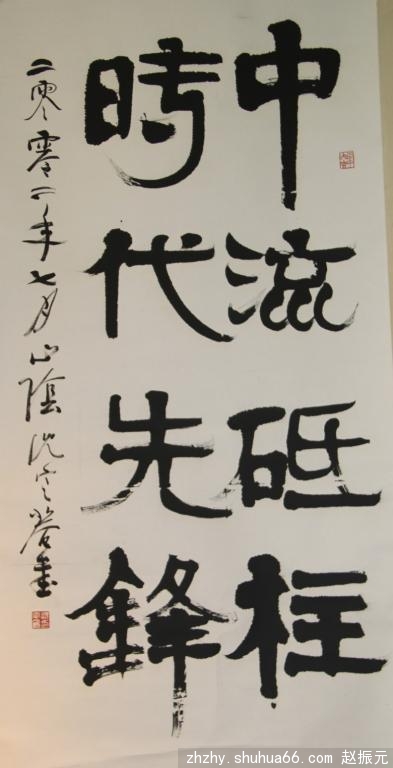 中流砥柱
時代先鋒
二零零一年七月山陰沈定庵書
zhzhy.shuhua66.com 赵振元